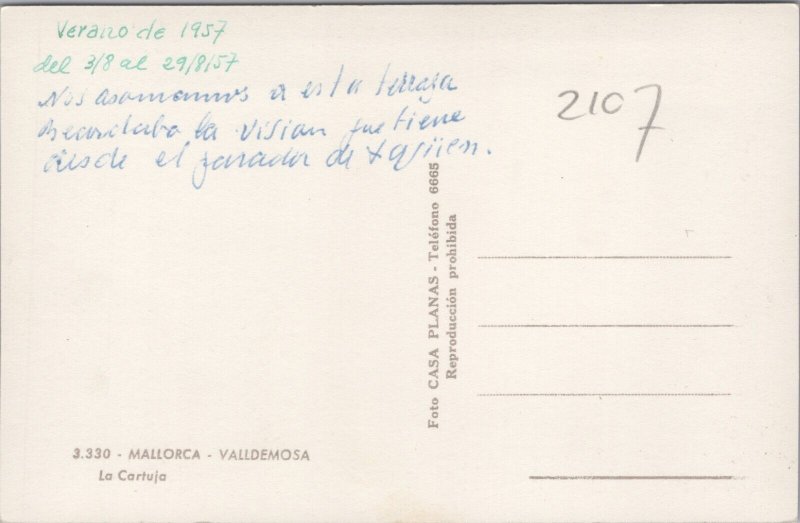 Verano de 1957
del 3/8 al 29/8/57
Nos asomamos a esta terraza
recordaba la vision que tiene
desde el parador de
2107
Foto CASA PLANAS - Teléfono 6665
Reproducción prohibida
3.330 - MALLORCA - VALLDEMOSA
La Cartuja